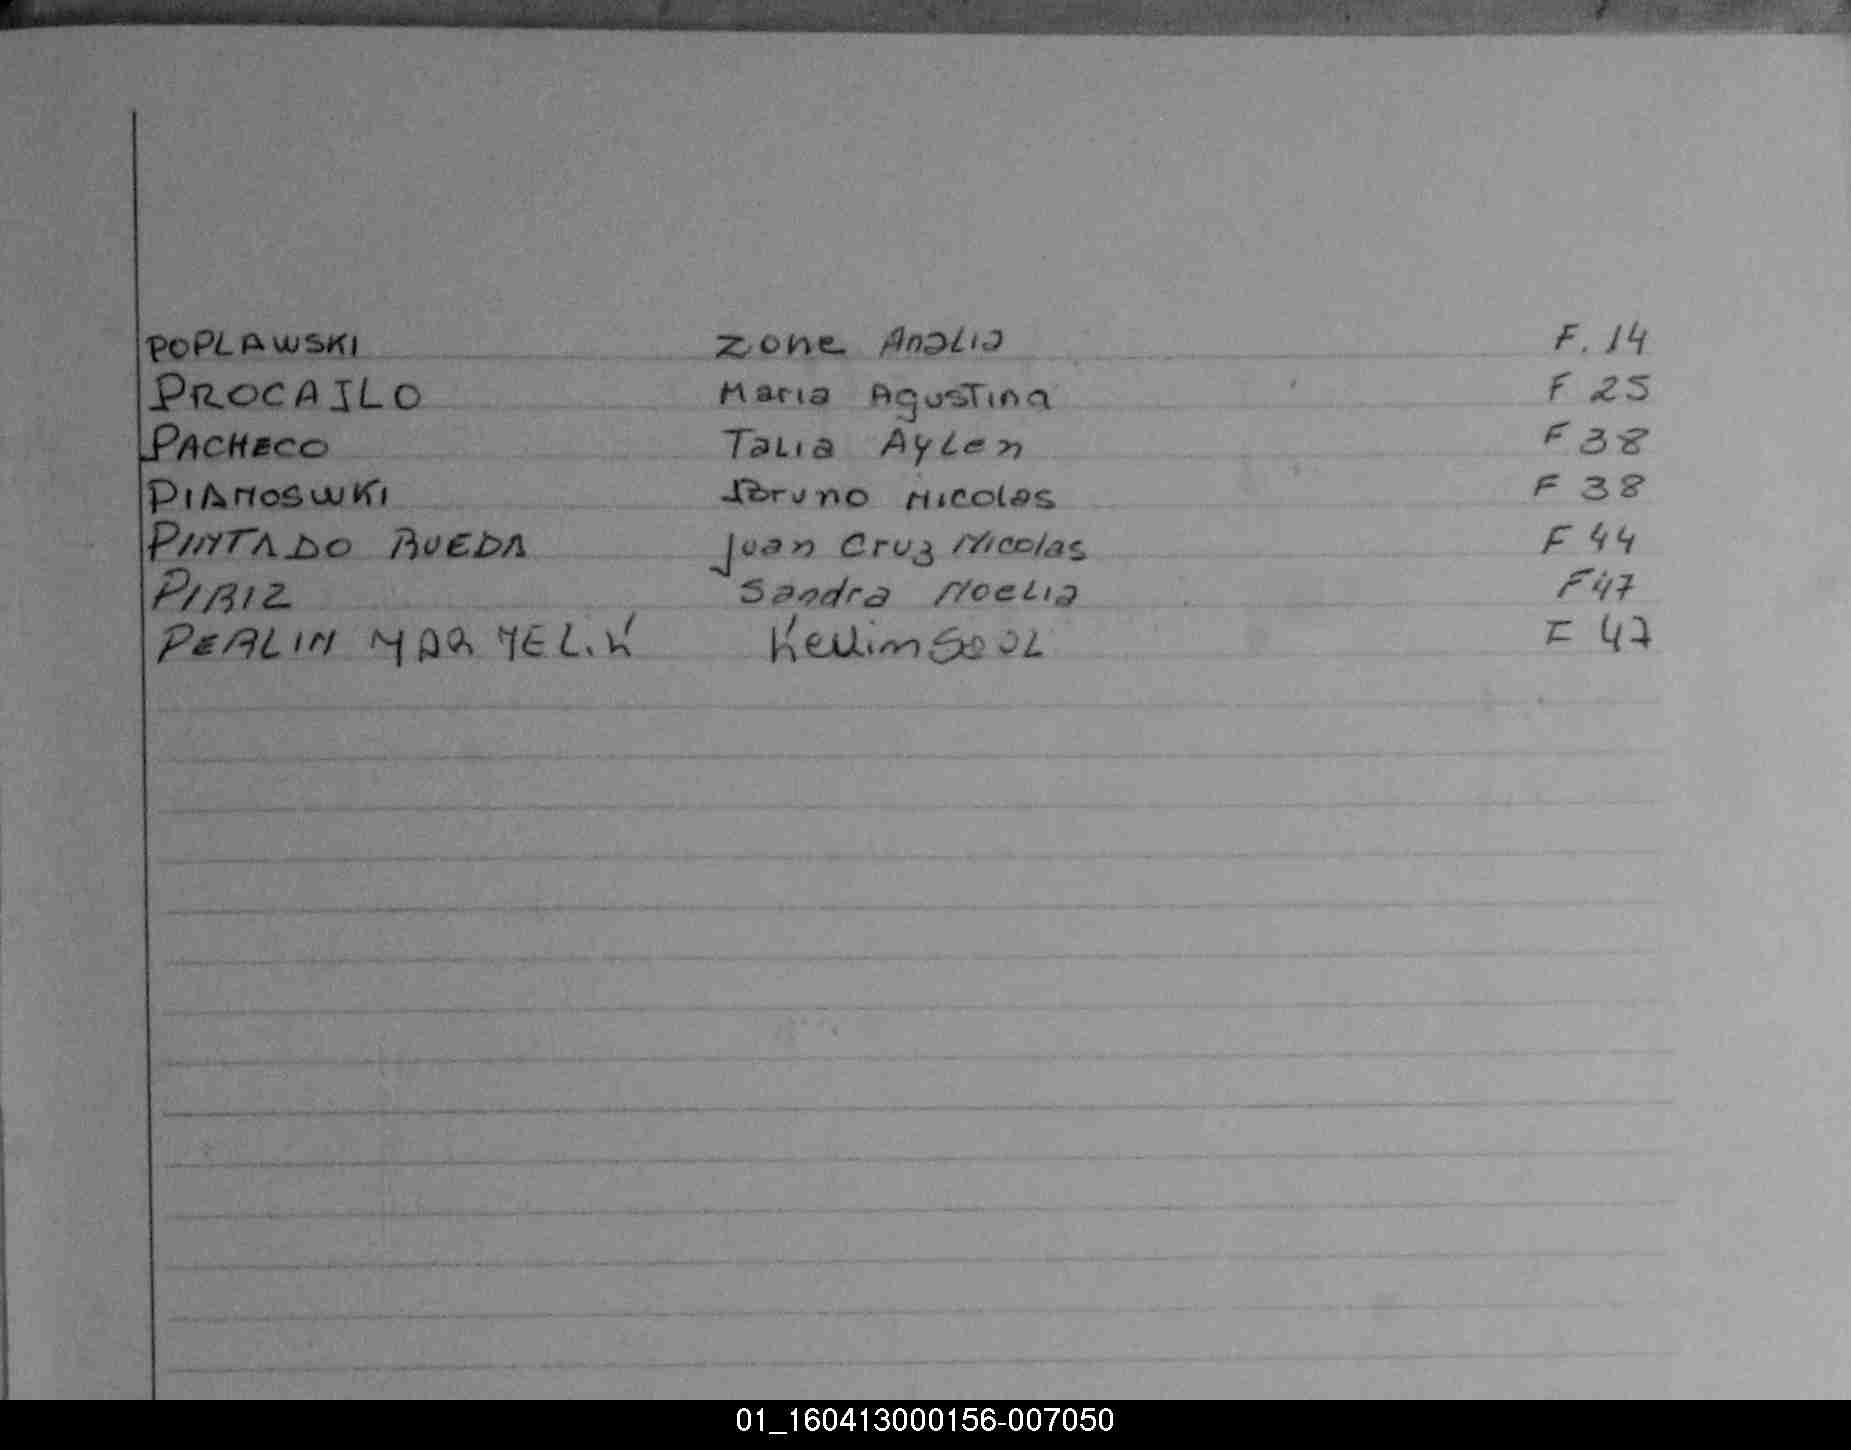 POPLAWSKI Zone Analia F. 14
PROCAILO Maria Agustina F 25
PACHECO Talia Aylen F 38
PIANOSWKI Bruno Nicolas F 38
PINTADO RUEDA Juan Cruz Nicolas F 44
PIRIZ Sandra Noelia F 47
F 47
01_160413000156-007050